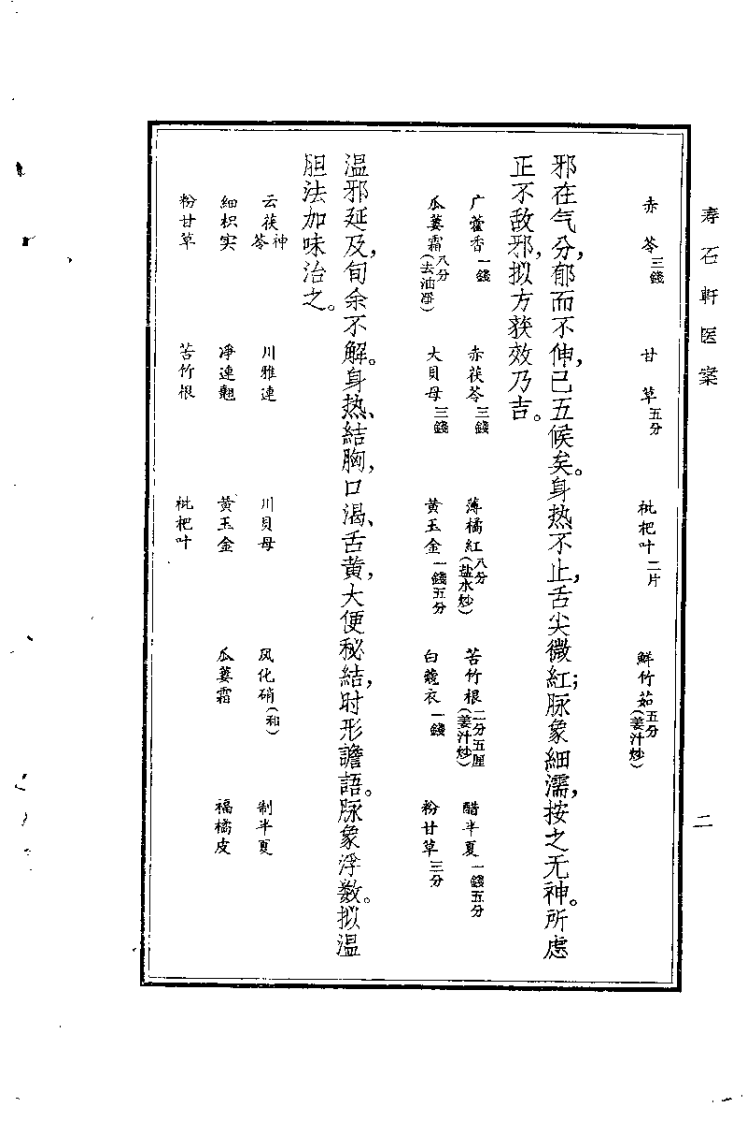 寿石軒医案
二
赤苓三錢 甘草五分 枇杷叶二片 鮮竹茹五分(姜汁炒)
邪在气分,郁而不伸,已五候矣。身热不止,舌尖微紅;脉象細濡,按之无神。所虑
正不敌邪,拟方获效乃吉。
广藿香一錢 赤茯苓三錢 薄橘紅八分(盐水炒) 苦竹根二分五厘(姜汁炒) 醋半夏一錢五分
瓜蒌霜八分(去油凈) 大貝母三錢 黄玉金一錢五分 白蔻衣一錢 粉甘草三分
温邪延及,旬余不解。身热、結胸,口渴、舌黄,大便秘結,时形譫語。脉象浮数。拟温
胆法加味治之。
云茯苓神 川雅連 川貝母 风化硝(和) 制半夏
細枳实 凈連翹 黄玉金 瓜蒌霜 福橘皮
粉甘草 苦竹根 枇杷叶